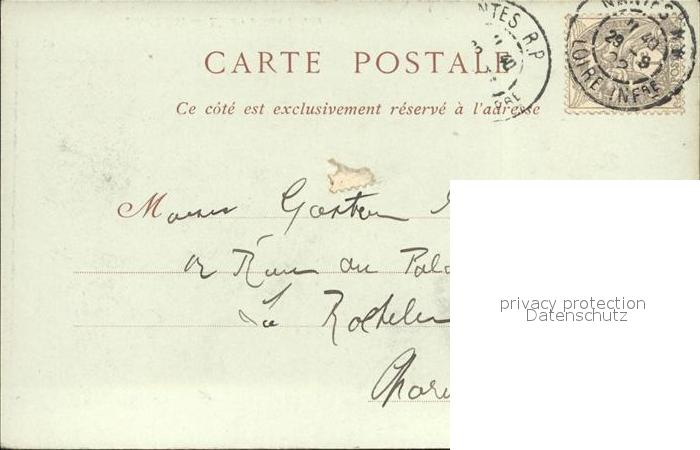 CARTE POSTALE
Ce côté est exclusivement réservé à l'adresse
NANTES R.P
NANTES R.P
LOIRE-INFRE
M Gaston
Rue du Pala
La Rochelle
Chare
privacy protection
Datenschutz